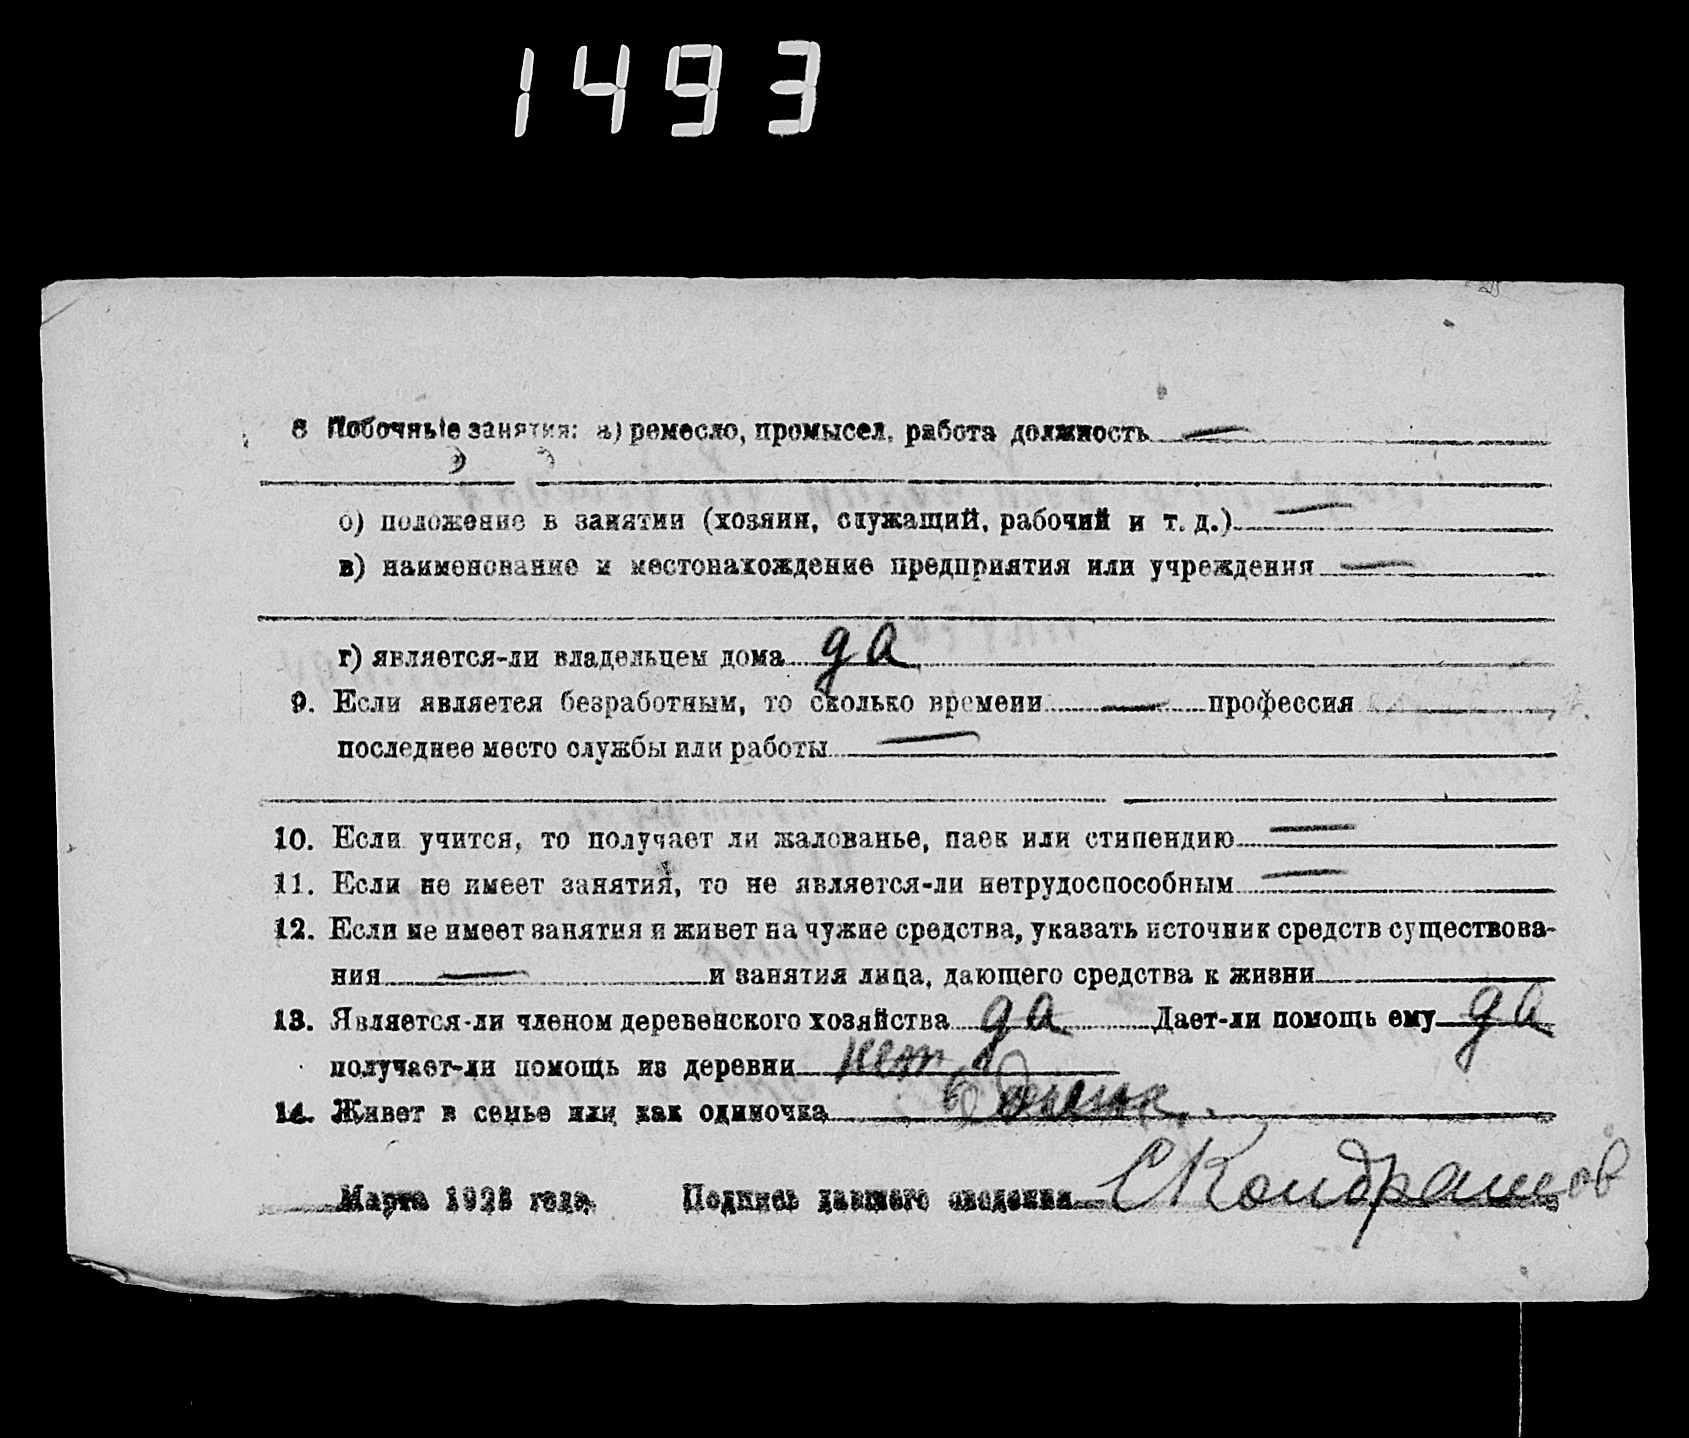 1493
8 Побочные занятия: а) ремесло, промысел, работа должность —
б) положение в занятии (хозяин, служащий, рабочий и т. д.) —
в) наименование и местонахождение предприятия или учреждения —
г) является-ли владельцем дома да
9. Если является безработным, то сколько времени — профессия
последнее место службы или работы —
10. Если учится, то получает ли жалованье, паек или стипендию —
11. Если не имеет занятия, то не является-ли нетрудоспособным —
12. Если не имеет занятия и живет на чужие средства, указать источник средств существова-
ния — и занятия лица, дающего средства к жизни
13. Является-ли членом деревенского хозяйства да Дает-ли помощь ему да
получает-ли помощь из деревни нет
14. Живет в семье или как одиночка
Марта 1923 года. Подпись давшего сведения СКондрашов